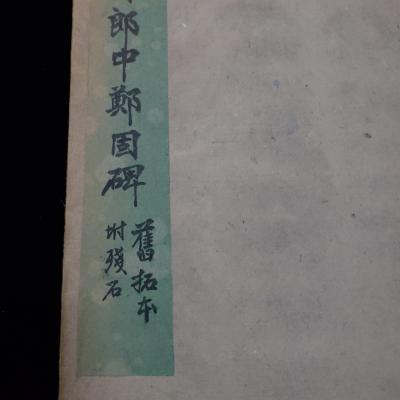 郎中鄭固碑
舊拓本
附殘石